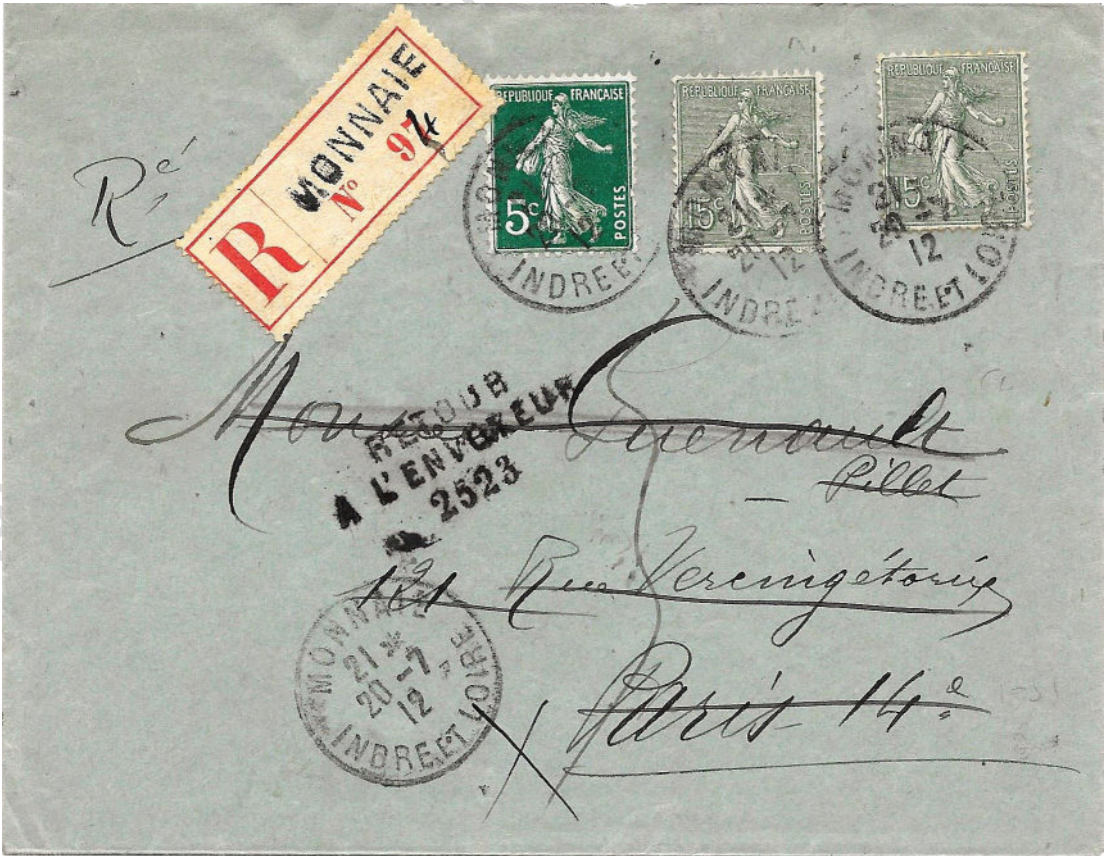 Ré
R
MONNAIE
Nº 974
REPUBLIQUE FRANÇAISE
5c
POSTES
REPUBLIQUE FRANÇAISE
15c
POSTES
REPUBLIQUE FRANÇAISE
15c
POSTES
INDRE ET
12
INDRE
12
INDRE ET LOIRE
12
RETOUR
A L'ENVOYEUR
2523
Pillet
121 Rue Vercingétorix
Paris 14e
MONNAIE
21 *
20-7
12
INDRE ET LOIRE